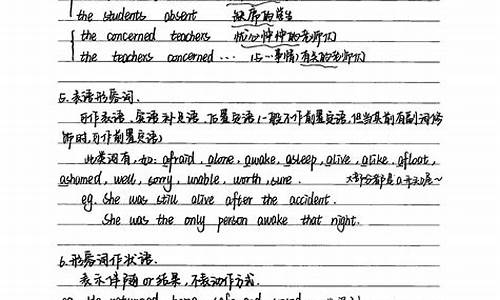 the students absent 缺席的学生
the concerned teachers 忧心忡忡的老师们
the teachers concerned … (与…事情)有关的老师们
5. 表语形容词.
可作表语、宾语补足语、后置定语(一般不作前置定语,但当其前有副词修
饰时,可作前置定语)
此类词有,如: afraid, alone, awake, asleep, alive, alike, afloat,
ashamed, well, sorry, unable, worth, sure. 大部分都是a开头的~
eg. She was still alive after the accident.
She was the only person awake that night.
6. 形容词作状语.
表示伴随 or 结果, 不表动作方式.
eg. He returned home, safe and